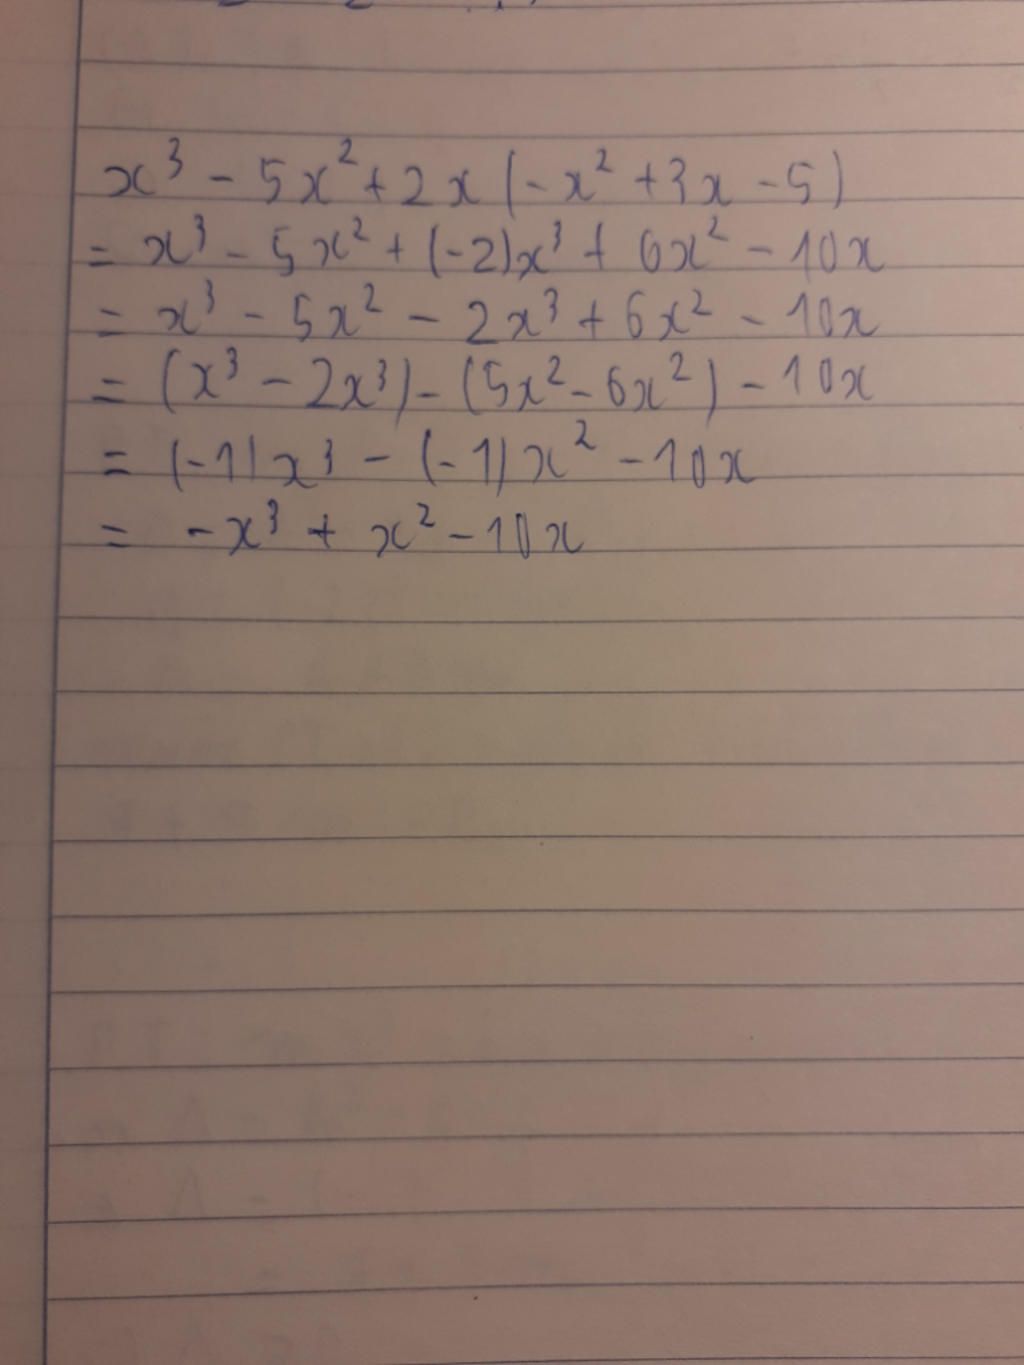 x³ - 5x² + 2x (-x² + 3x - 5)
= x³ - 5x² + (-2)x³ + 6x² - 10x
= x³ - 5x² - 2x³ + 6x² - 10x
= (x³ - 2x³) - (5x² - 6x²) - 10x
= (-1)x³ - (-1)x² - 10x
= -x³ + x² - 10x